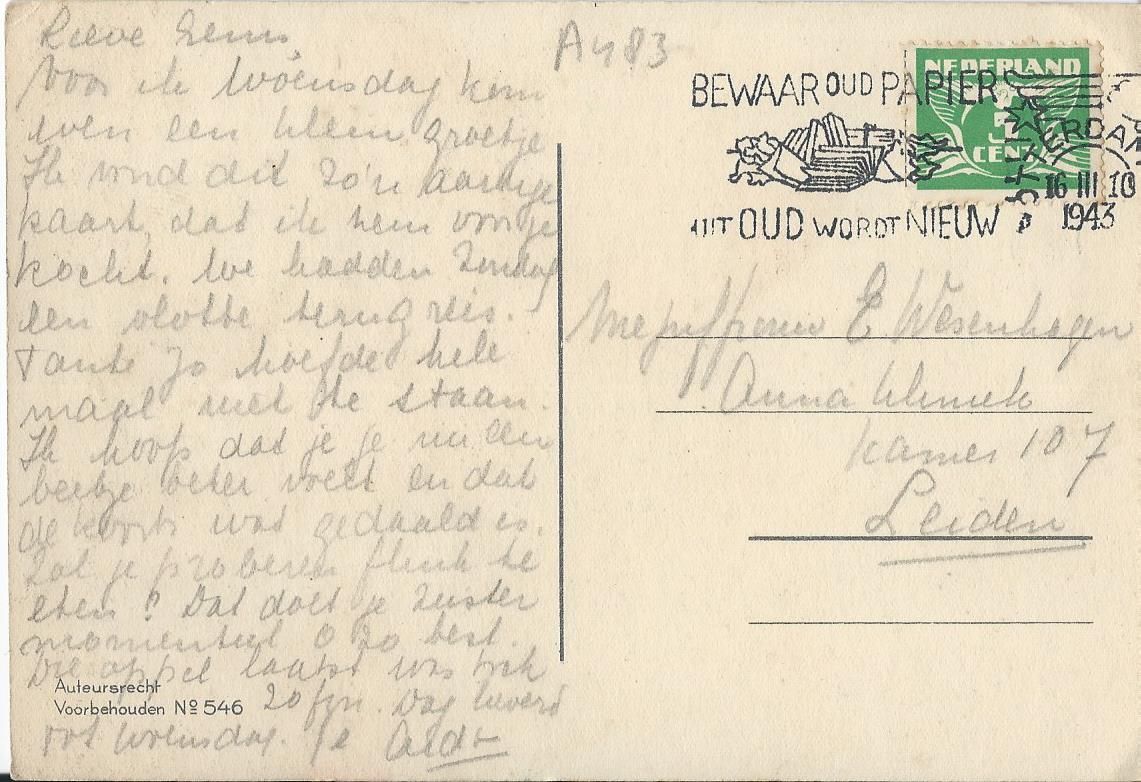 Lieve
Voor de Woensdag kom
even een klein groetje
In dat aan zo'n aardige
kaart, dat ik hem voor je
kocht. We hadden Zondag
een vlotte terugreis.
tante Jo hoefde hele
maal niet te staan.
Ik hoop dat je je nu een
beetje beter voelt en dat
de koorts wat gedaald is.
Zal je proberen flink te
eten? Dat doet je zuster
momenteel o zo best.
Die appel laatst was toch
zo fijn. Dag
tot Woensdag. Je
Auteursrecht
Voorbehouden Nº 546
A483
BEWAAR OUD PAPIER
UIT OUD WORDT NIEUW
NEDERLAND
CENT
AMSTERDAM
16 III 10
1943
Mejuffrouw E Wesenhagen
Anna Kliniek
Kamer 107
Leiden